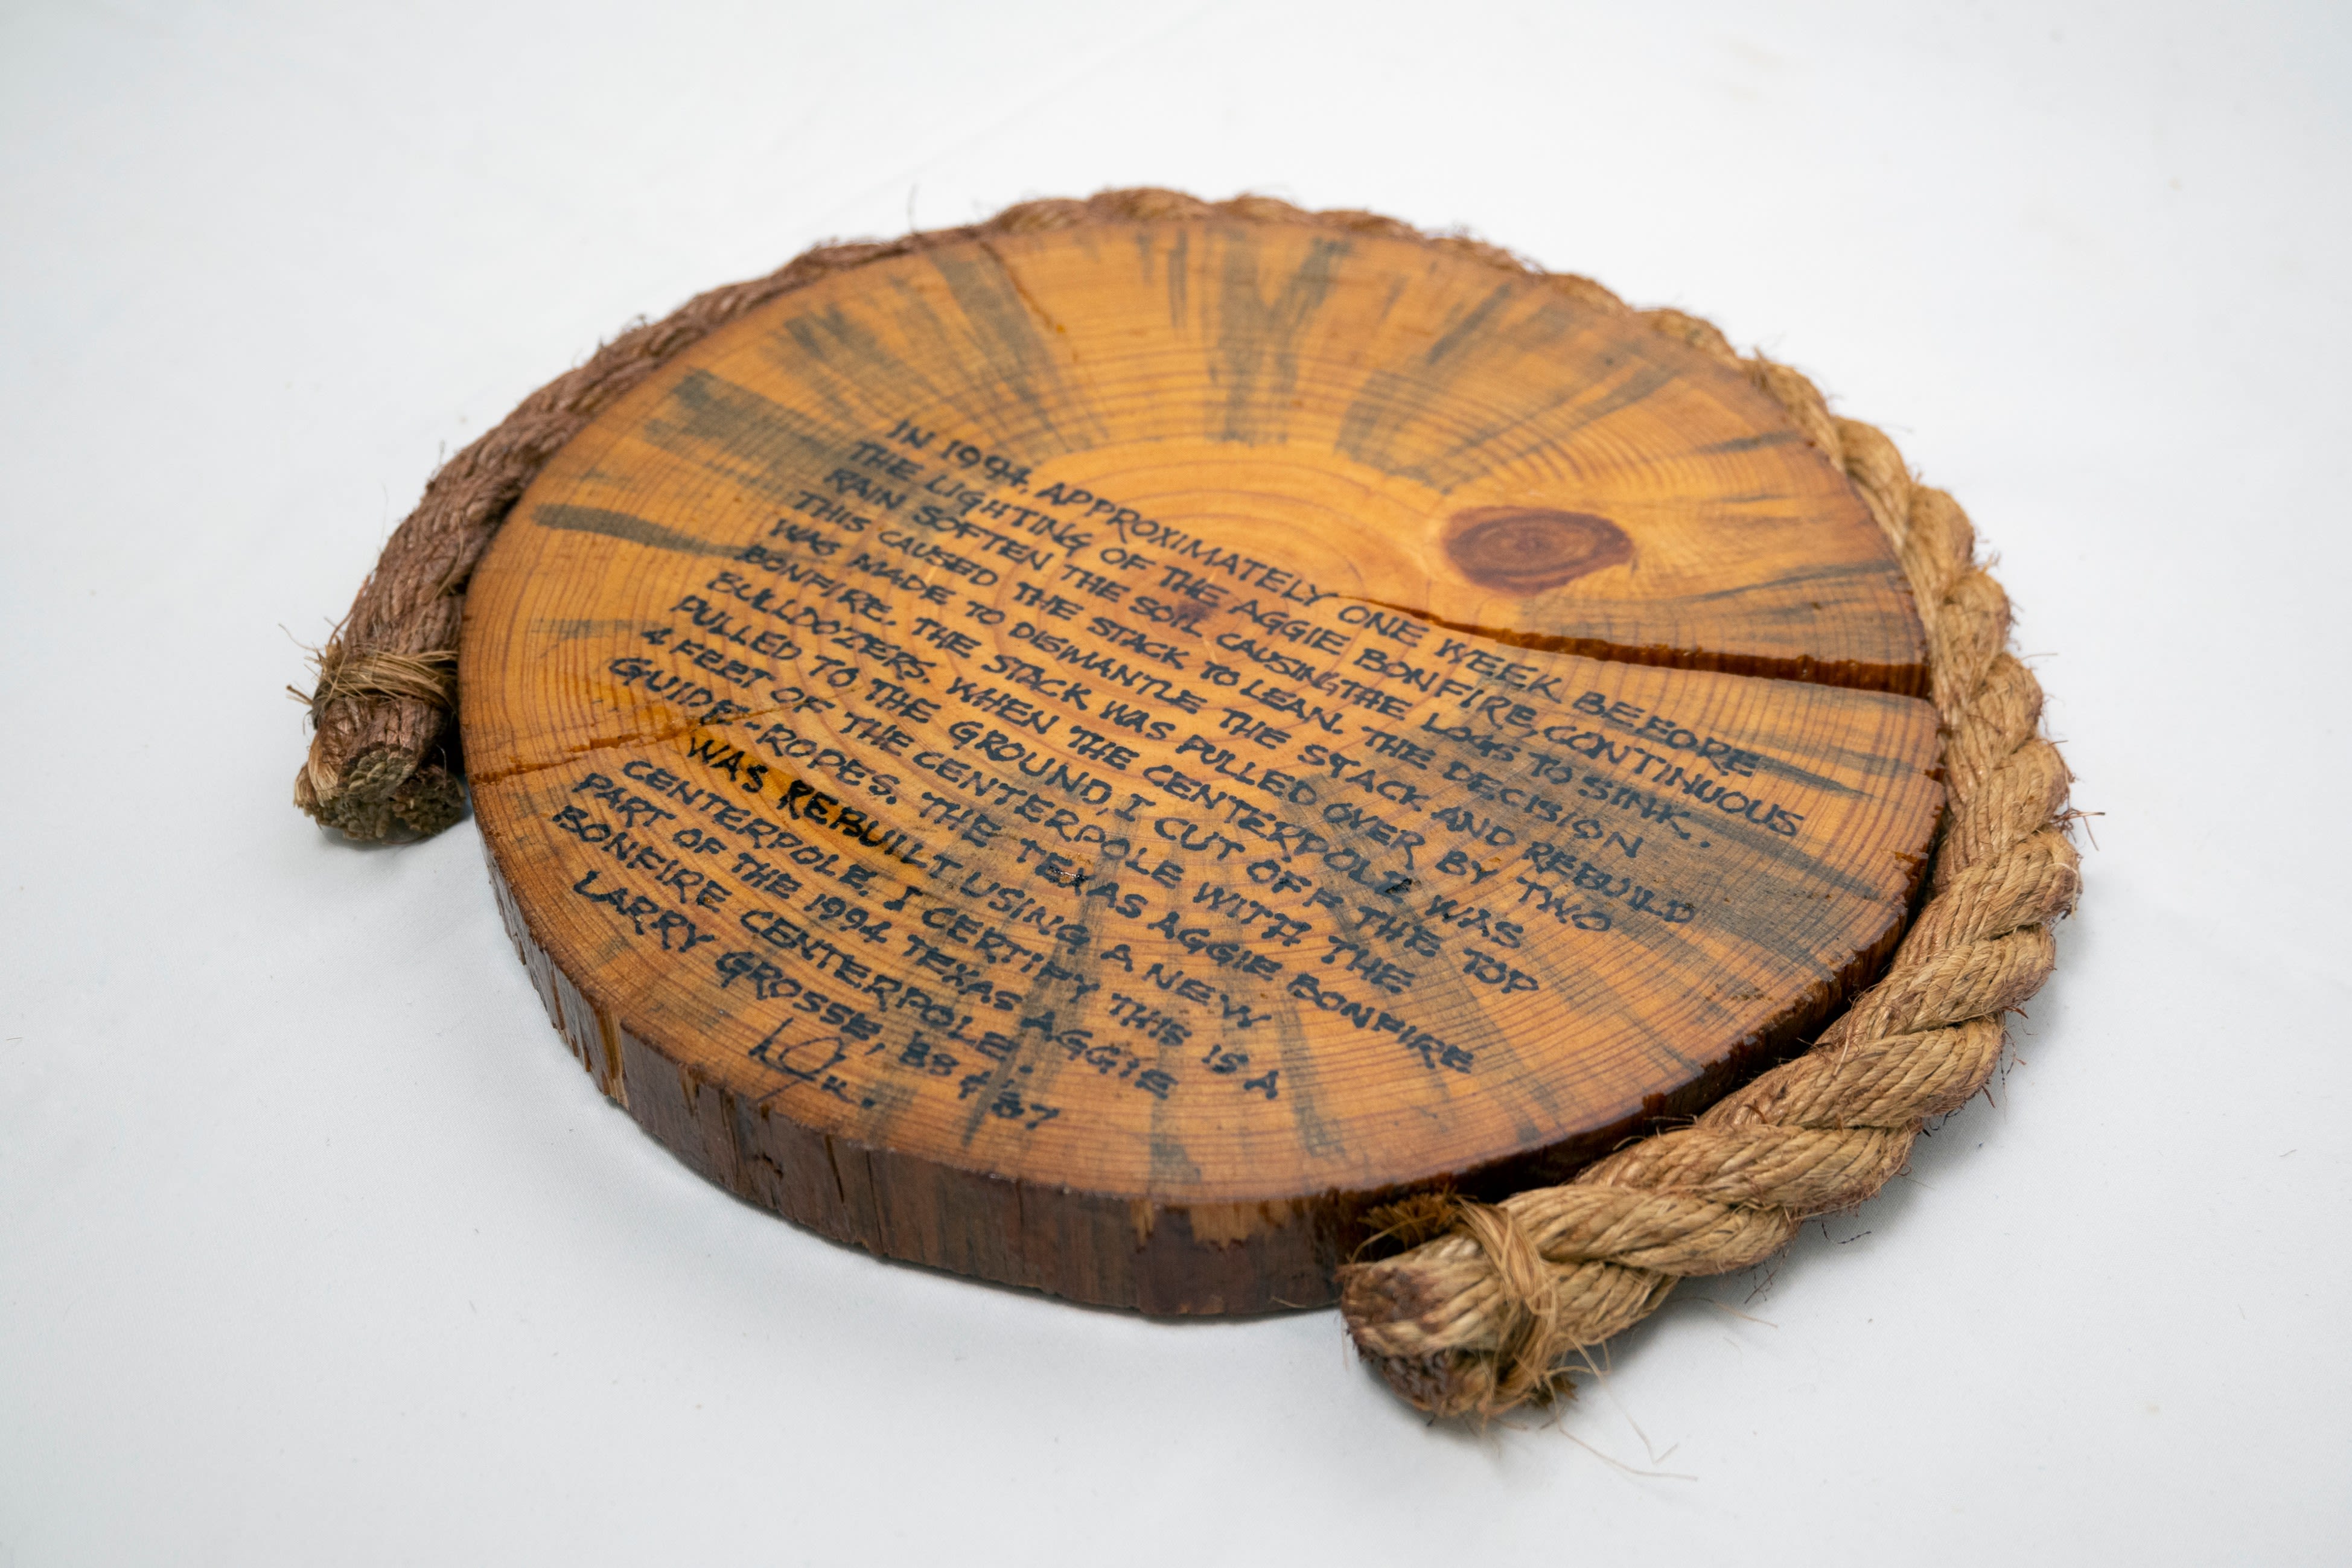 IN 1994, APPROXIMATELY ONE WEEK BEFORE
THE LIGHTING OF THE AGGIE BONFIRE, CONTINUOUS
RAIN SOFTEN THE SOIL CAUSING THE LOGS TO SINK.
THIS CAUSED THE STACK TO LEAN. THE DECISION
WAS MADE TO DISMANTLE THE STACK AND REBUILD
BONFIRE. THE STACK WAS PULLED OVER BY TWO
BULLDOZERS. WHEN THE CENTERPOLE WAS
PULLED TO THE GROUND, I CUT OFF THE TOP
4 FEET OF THE CENTERPOLE WITH THE
GUIDE-ROPES. THE TEXAS AGGIE BONFIRE
WAS REBUILT USING A NEW
CENTERPOLE. I CERTIFY THIS IS A
PART OF THE 1994 TEXAS AGGIE
BONFIRE CENTERPOLE.
LARRY GROSSE, BS & '87